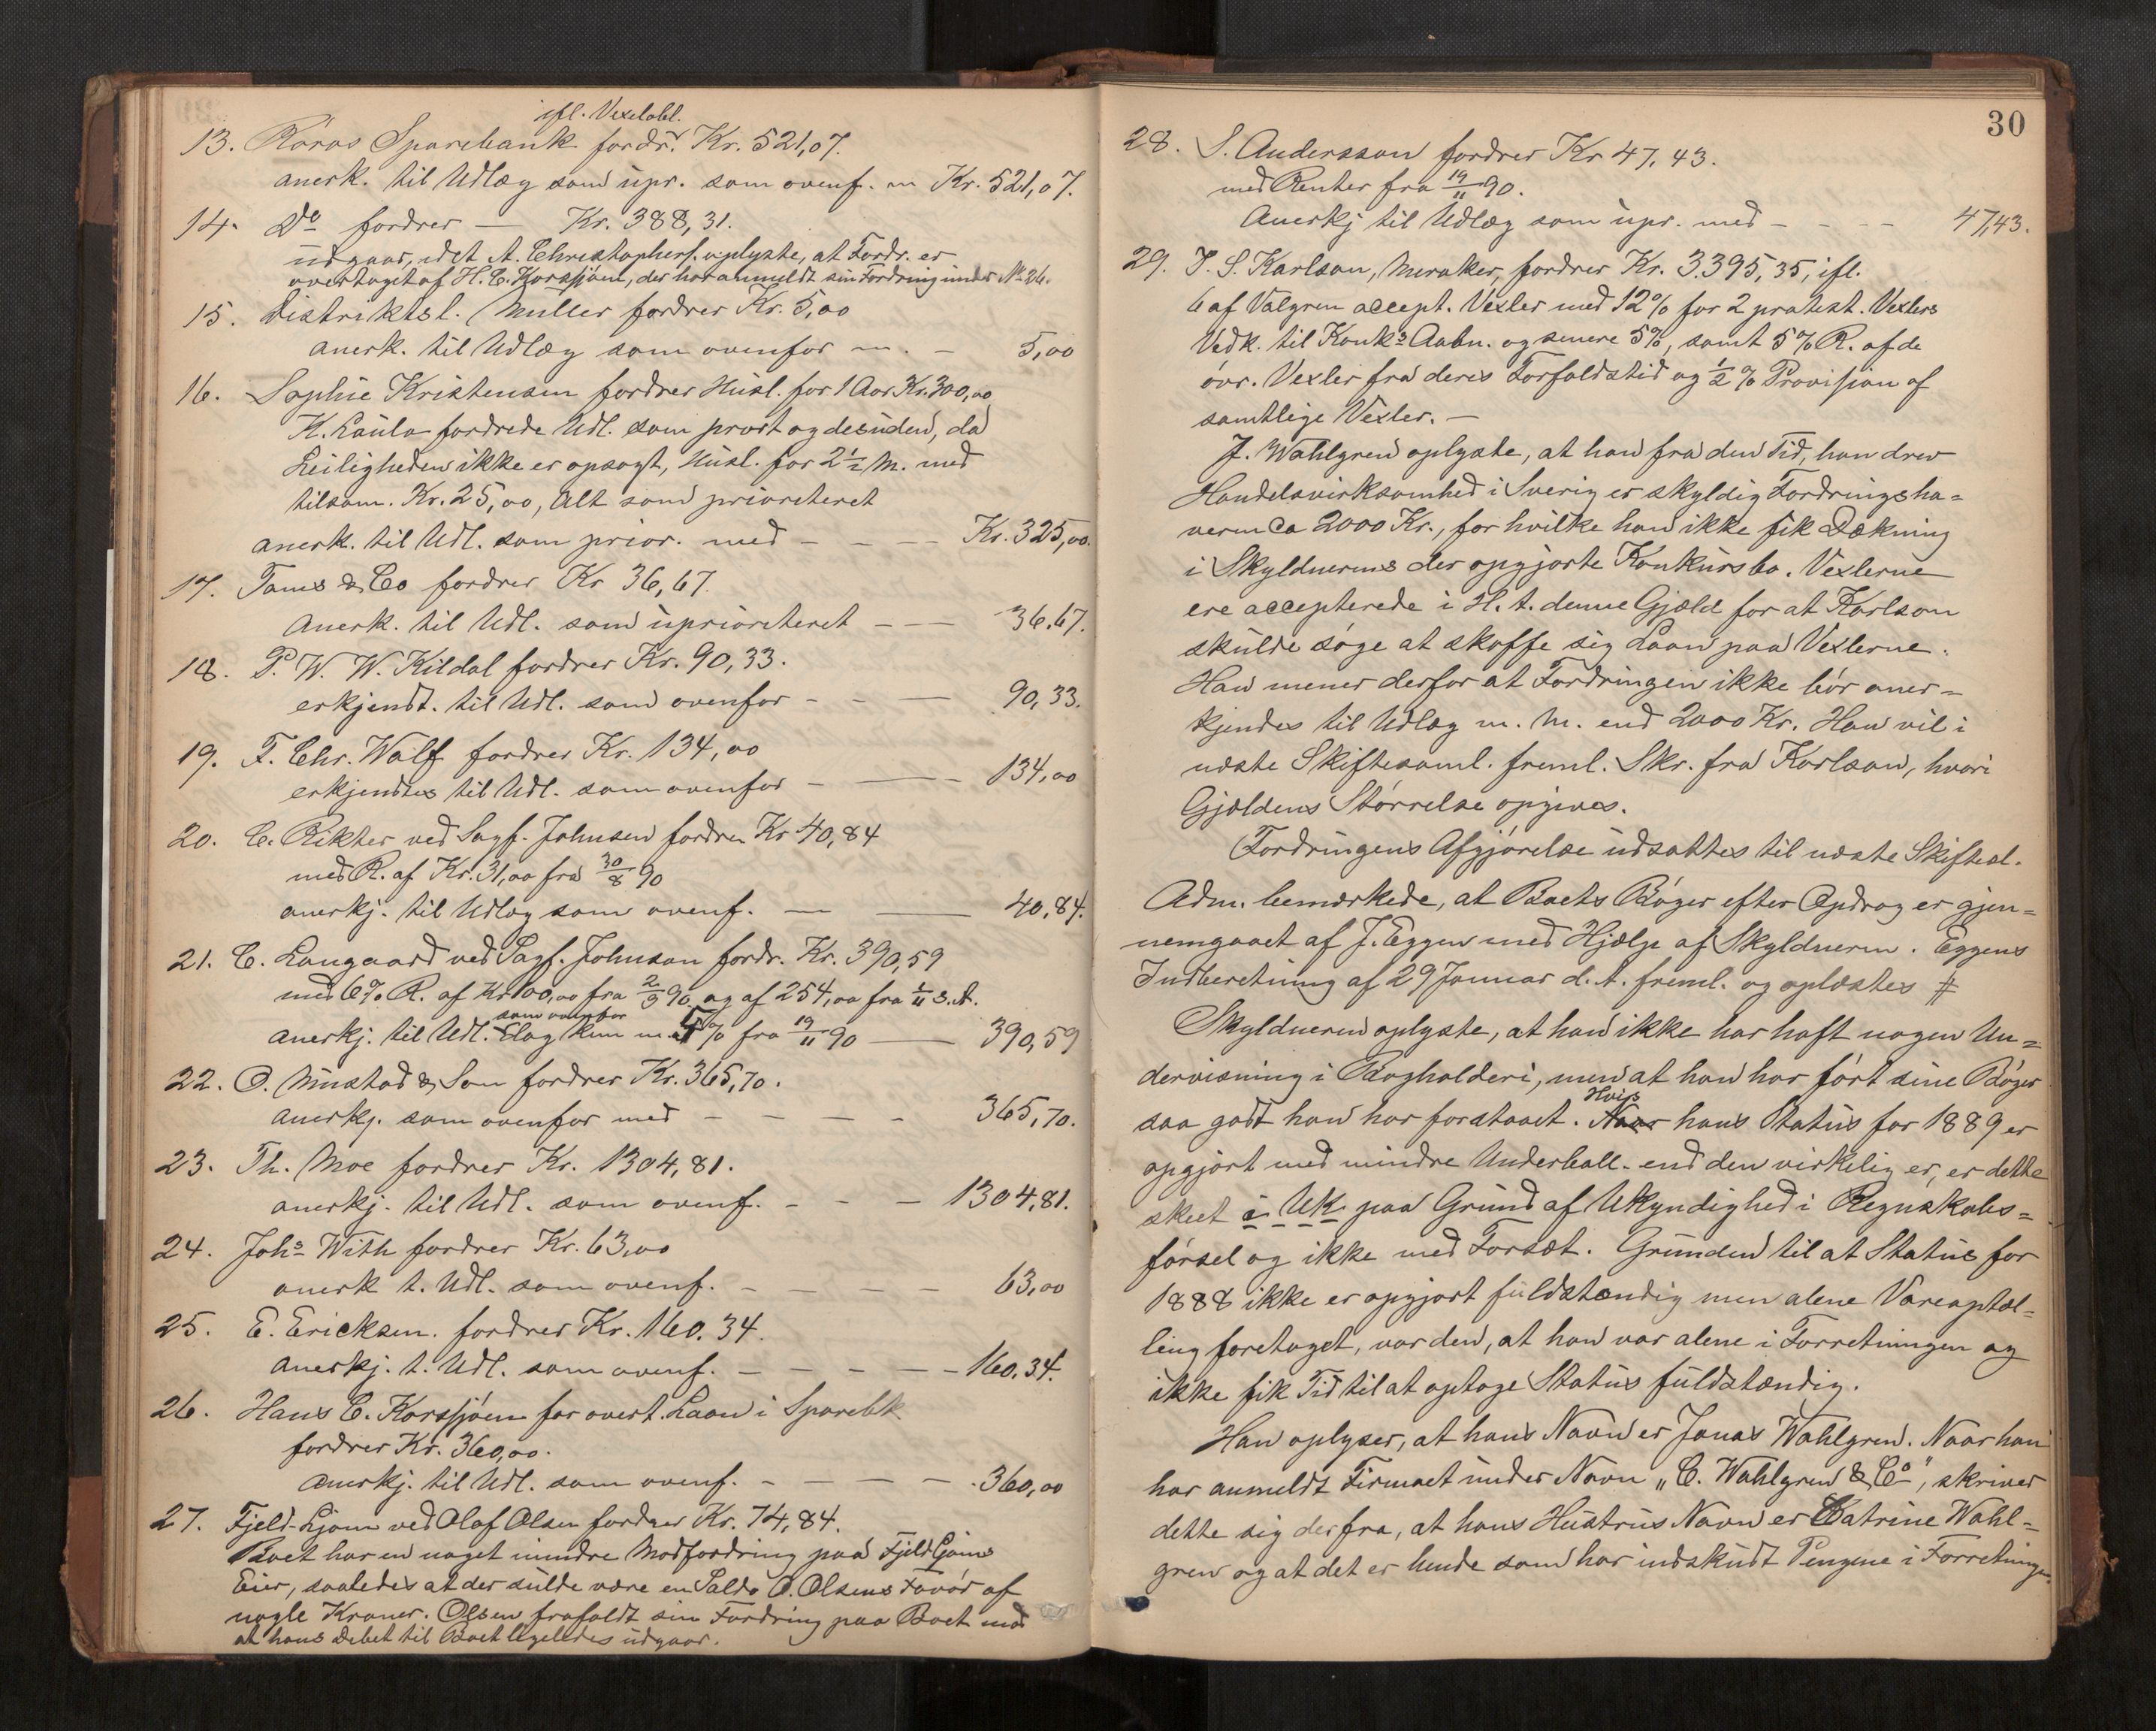 ifl. Vexelobl.
13. Røros Sparebank fordr. Kr. 521,07.
anerk. til Udlæg som upr. som ovenf. m Kr. 521,07.
14. Do fordrer — Kr. 388,31.
udgaar, idet A. Christophers. oplyste, at Fordr. er
overtaget af H. C. Korssjøen, der har anmeldt sin Fordring under No 26.
15. Distriktsl. Müller fordrer Kr. 5,00
anerk. til Udlæg som ovenfor m. — 5,00
16. Sophie Kristensen fordrer Husl. for 1 Aar Kr. 300,00
K. Laula fordrede Udl. som prort og desuden, da
Leiligheden ikke er opsagt, Husl. for 2½ M. med
tilsam. Kr. 25,00, Alt som prioriteret
anerk. til Udl. som prior. med - - - - Kr. 325,00.
17. Tams & Co fordrer Kr 36,67.
Anerk. til Udl. som uprioriteret - — 36.67.
18. P. W. W. Kildal fordrer Kr. 90,33.
erkjendt. til Udl. som ovenfor - - — 90,33.
19. F. Chr. Wolf fordrer Kr. 134,00
erkjendtes til Udl. som ovenfor - — - 134,00
20. C. Rikter ved Sagf. Johnsen fordrer Kr 40,84
med R. af Kr. 31,00 fra 30/8 90
anerkj. til Udlæg som ovenf. — — 40,84.
21. C. Langaard ved Sagf. Johnson fordr. Kr. 390,59
med 6% R. af Kr 100,00 fra 2/9 90 og af 254,00 fra 1/11 s. A.
som ovenfor
anerkj. til Udl. dog kun m. 5% fra 19/11 90 — 390,59
22. O. Mustad & Søn fordrer Kr. 365,70.
anerkj. som ovenfor med - - - - 365,70.
23. Th. Moe fordrer Kr. 1304,81.
anerkj. til Udl. som ovenf. - - - 1304,81.
24. Johs With fordrer Kr. 63,00
anerk t. Udl. som ovenf. - - - - 63,00
25. E. Ericksen. fordrer Kr. 160.34.
anerkj. t. Udl. som ovenf. - - - - - 160.34.
26. Hans C. Korssjøen for overt. Laan i Sparebk.
fordrer Kr. 360,00.
anerkj. til Udl. som ovenf. - - - - - 360,00
27. Fjeld-Ljom ved Olaf Olsen fordrer Kr. 74,84.
Boet har en noget mindre Modfordring paa Fjeld Ljoms
Eier, saaledes at der sulde være en Saldo O. Olsens Favør af
nogle Kroner. Olsen frafaldt sin Fordring paa Boet mod
at hans Debet til Boet ligeledes udgaar.
30
28. S. Andersson fordrer Kr 47,43.
med Renter fra 19/11 90.
Anerkj til Udlæg som upr. med - - - - 47,43.
29. J. S. Karlson, Meraker, fordrer Kr. 3.395,35, ifl.
6 af Valgren accept. Vexler med 12% for 2 protest. Vexlers
Vedk. til Konks Aabn. og senere 5%, samt 5% R. af de
øvr. Vexler fra deres Forfaldstid og ½% Provision af
samtlige Vexler. —
J. Wahlgren oplyste, at han fra den Tid, han drev
Handelsvirksomhed i Sverig er skyldig Fordringsha=
veren ca 2000 Kr., for hvilke han ikke fik Dækning
i Skyldnerens der opgjorte Konkursbo. Vexlerne
ere accepterede i H. t. denne Gjæld for at Karlson
skulde søge at skaffe sig Laan paa Vexlerne.
Han mener derfor at Fordringen ikke bør aner=
kjendes til Udlæg m. M. end 2000 Kr. Han vil i
næste Skiftesaml. freml. Skr. fra Karlson, hvori
Gjældens Størrelse opgives.
Fordringens Afgjørelse udsattes til næste Skiftesl.
Adm. bemærkede, at Boets Bøger efter Opdrag er gjen=
nemgaaet af J. Eggen med Hjælp af Skyldneren. Eggens
Indberetning af 29 Januar d. A. freml. og oplæstes #
Skyldneren oplyste, at han ikke har haft nogen Un=
dervisning i Bogholderi, men at han har ført sine Bøger
Hvis
saa godt han har forstaaet. Naar hans Status for 1889 er
opgjort med mindre Underball. end den virkelig er, er dette
skeet i Uk paa Grund af Ukyndighed i Regnskabs=
førsel og ikke med Forsæt. Grunden til at Status for
1888 ikke er opgjort fuldstændig men alene Vareoptæl-
ling foretaget, var den, at han var alene i Forretningen og
ikke fik Tid til at optage Status fuldstændig.
Han oplyser, at hans Navn er Jonas Wahlgren. Naar han
har anmeldt Firmaet under Navn „C. Wahlgren & Co", skriver
dette sig derfra, at hans Hustrus Navn er Catrine Wahl=
gren og at det er hende som har indskudt Pengene i Forretningen.